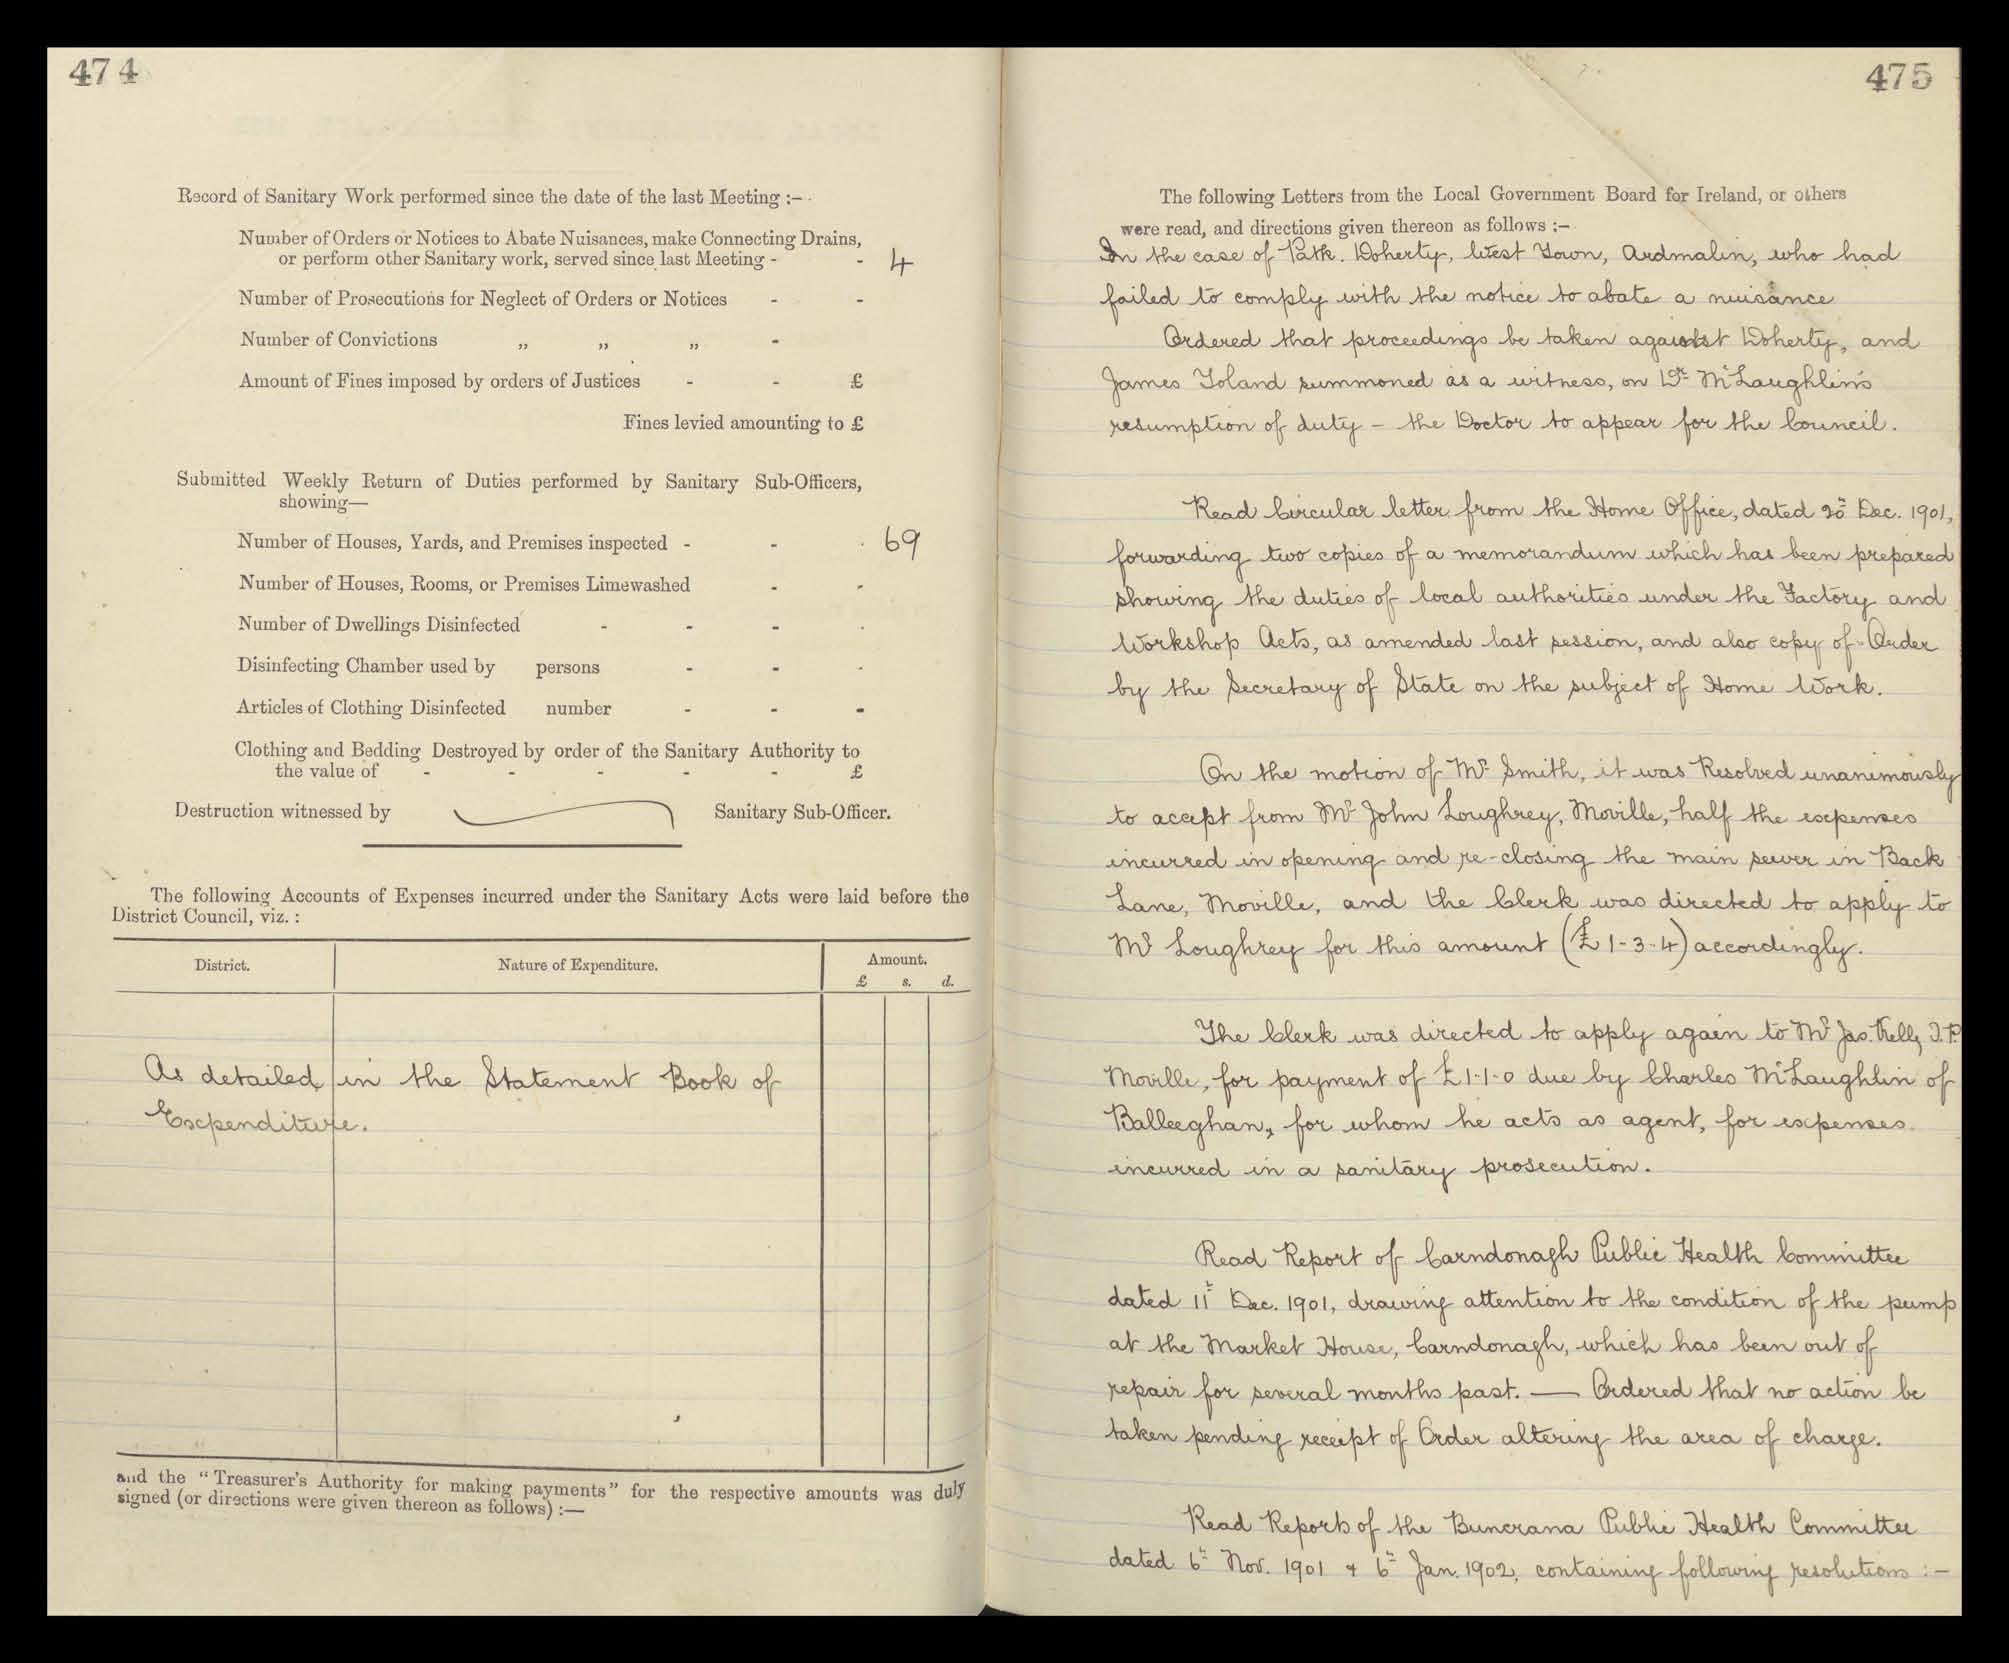 474
Record of Sanitary Work performed since the date of the last Meeting :—
Number of Orders or Notices to Abate Nuisances, make Connecting Drains,
or perform other Sanitary work, served since last Meeting - - 4
Number of Prosecutions for Neglect of Orders or Notices - -
Number of Convictions „ „ „ -
Amount of Fines imposed by orders of Justices - - £
Fines levied amounting to £
Submitted Weekly Return of Duties performed by Sanitary Sub-Officers,
showing—
Number of Houses, Yards, and Premises inspected - - - 69
Number of Houses, Rooms, or Premises Limewashed - -
Number of Dwellings Disinfected - - - -
Disinfecting Chamber used by persons - - -
Articles of Clothing Disinfected number - - -
Clothing and Bedding Destroyed by order of the Sanitary Authority to
the value of - - - - - £
Destruction witnessed by Sanitary Sub-Officer.
The following Accounts of Expenses incurred under the Sanitary Acts were laid before the
District Council, viz. :
District. Nature of Expenditure. Amount.
£ s. d.
As detailed in the Statement Book of
Expenditure.
and the "Treasurer's Authority for making payments" for the respective amounts was duly
signed (or directions were given thereon as follows) :—
475
The following Letters from the Local Government Board for Ireland, or others
were read, and directions given thereon as follows :—
In the case of Patk. Doherty, West Town, Ardmalin, who had
failed to comply with the notice to abate a nuisance
Ordered that proceedings be taken against Doherty, and
James Toland summoned as a witness, on Dr. McLaughlin's
resumption of duty - the Doctor to appear for the Council.
Read Circular letter from the Home Office, dated 20th Dec. 1901,
forwarding two copies of a memorandum which has been prepared
showing the duties of local authorities under the Factory and
Workshop Acts, as amended last session, and also copy of Order
by the Secretary of State on the subject of Home Work.
On the motion of Mr. Smith, it was Resolved unanimously
to accept from Mr John Loughrey, Moville, half the expenses
incurred in opening and re-closing the main sewer in Back
Lane, Moville, and the Clerk was directed to apply to
Mr Loughrey for this amount (£1-3-4) accordingly.
The Clerk was directed to apply again to Mr Jas. Kelly, J.P.
Moville, for payment of £1-1-0 due by Charles McLaughlin of
Balleeghan, for whom he acts as agent, for expenses
incurred in a sanitary prosecution.
Read Report of Carndonagh Public Health Committee
dated 11th Dec. 1901, drawing attention to the condition of the pump
at the Market House, Carndonagh, which has been out of
repair for several months past. — Ordered that no action be
taken pending receipt of Order altering the area of charge.
Read Reports of the Buncrana Public Health Committee
dated 6th Nov. 1901 & 6th Jan. 1902, containing following resolutions :-